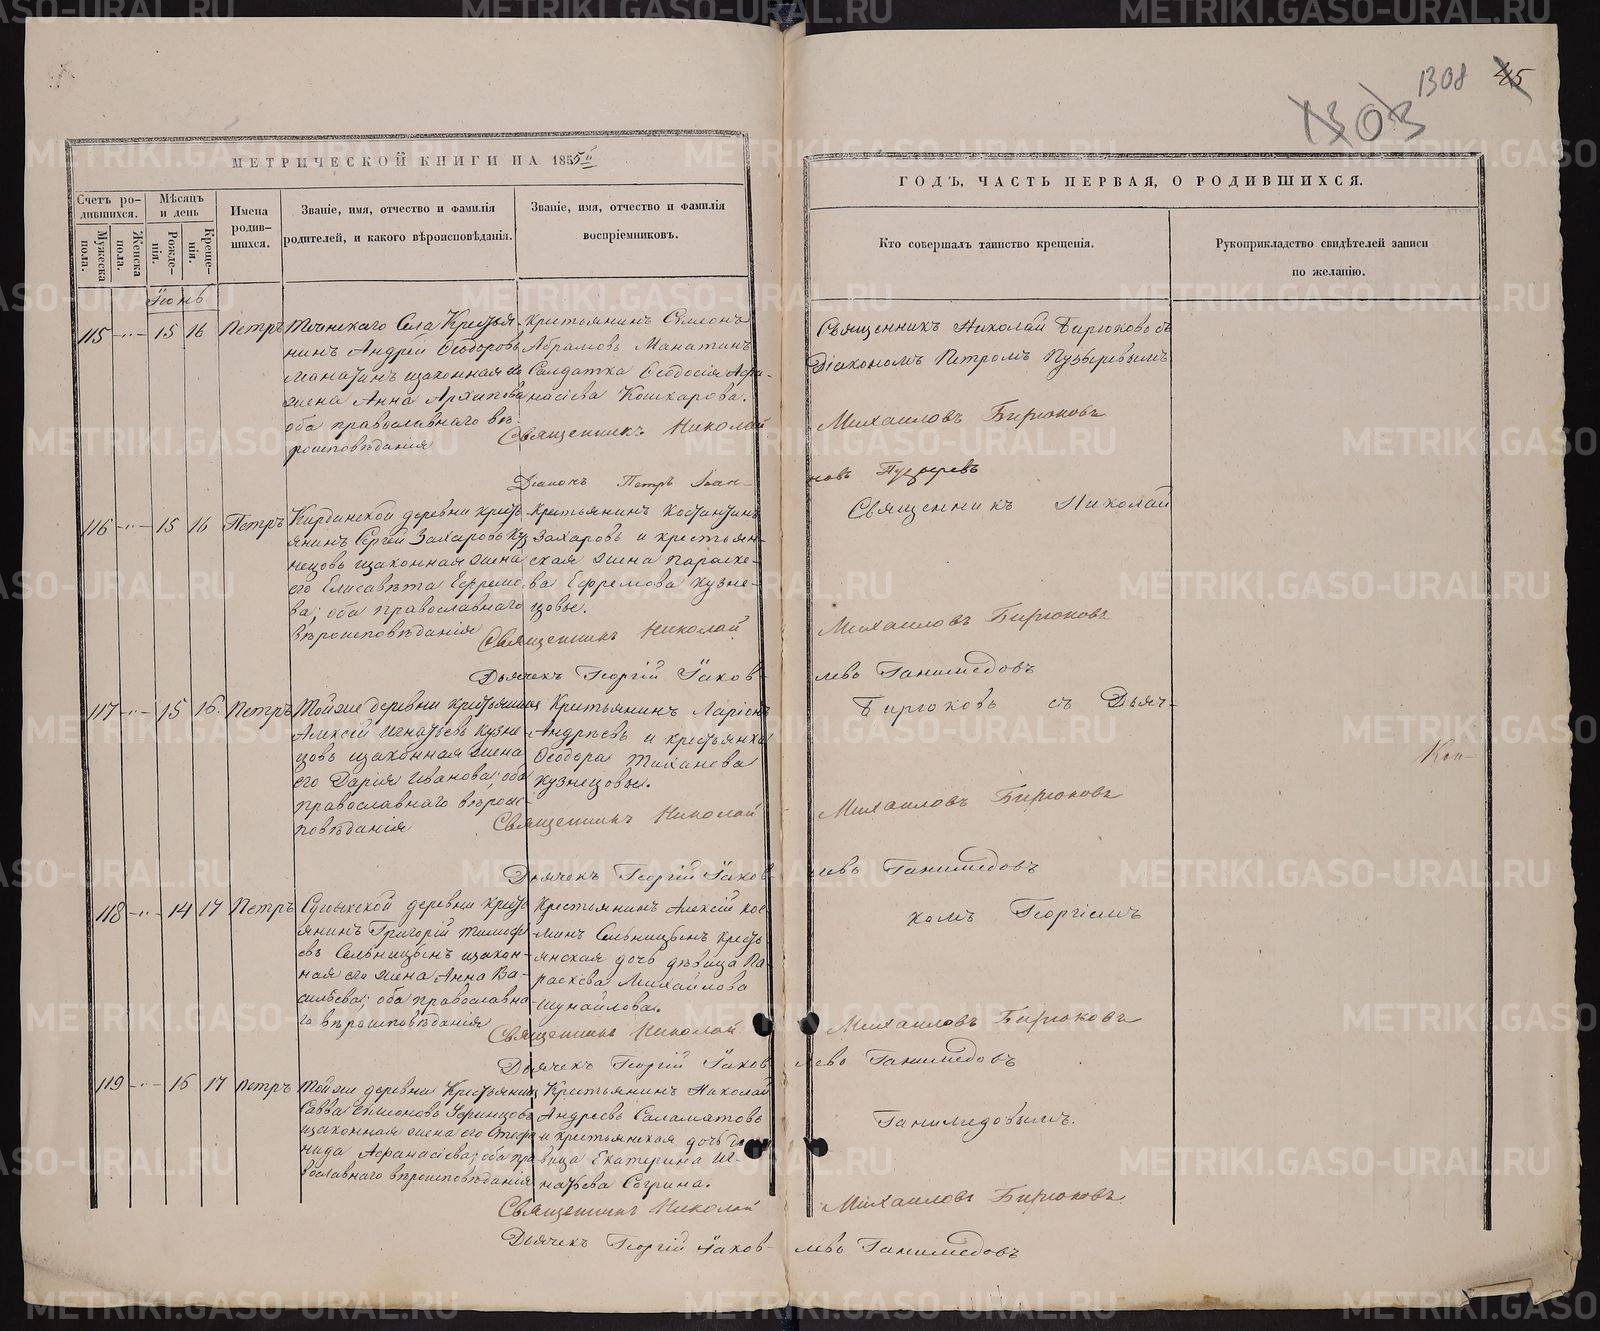 1308 45
МЕТРИЧЕСКОЙ КНИГИ НА 1855й
ГОДЪ, ЧАСТЬ ПЕРВАЯ, О РОДИВШИХСЯ.
Счетъ ро-
дившихся.
Мужеска
пола.
Женска
пола.
Мѣсяцъ
и день
Рожде-
нія.
Креще-
нія.
Имена
родив-
шихся.
Званіе, имя, отчество и фамилія
родителей, и какого вѣроисповѣданія.
Званіе, имя, отчество и фамилія
воспріемниковъ.
Кто совершалъ таинство крещенія.
Рукоприкладство свидѣтелей записи
по желанію.
Іюнь
115 15 16 Петръ
Села Крестья-
нинъ Андрей Ѳеодоровъ
Манатинъ изаконная его
жена Анна Архипова
оба православнаго вѣ-
роисповѣданія
Крестьянинъ Симеонъ
Абрамовъ Манатинъ
Солдатка Ѳеодосія Афа-
насіева Кошкарова.
Священникъ Николай Бирюковъ съ
Діакономъ Петромъ Пузыревымъ
Священникъ Николай Михаиловъ Бирюковъ
Діаконъ Петръ Іоан-новъ Пузыревъ
116 15 16 Петръ
деревни кресть-
янинъ Сергей Захаровъ Куз
нецовъ изаконная жена
его Елисавѣта Ефремо
ва; оба православнаго
вѣроисповѣданія
Крестьянинъ Костантинъ
Захаровъ и крестьян-
ская жена Параске-
ва Ефремова Кузне-
цовы.
Священникъ Николай
Священникъ Николай Михаиловъ Бирюковъ
Дьячекъ Георгій Іаков-левъ Ганимедовъ
117 15 16 Петръ
Тойже деревни крестьянинъ
Алексей Игнатьевъ Кузне
цовъ изаконная жена
его Дарія Иванова; оба
православнаго вѣроис-
повѣданія
Крестьянинъ Ларіонъ
Андреевъ и крестьянка
Ѳеодора
Кузнецовы.
Бирюковъ съ Дьяч-
Священникъ Николай Михаиловъ Бирюковъ
Дьячекъ Георгій Іаков-левъ Ганимедовъ
118 14 17 Петръ
деревни кресть
янинъ Григорій Тимофе
евъ изакон-
ная его жена Анна Ва-
сильева; оба православна-
го вѣроисповѣданія
Крестьянинъ Алексій Кос-
минъ кресть-
янская дочь дѣвица Па-
раскева Михайлова
Шумайлова.
комъ Георгіемъ
Священникъ Николай Михаиловъ Бирюковъ
Дьячекъ Георгій Іаков-левъ Ганимедовъ
119 16 17 Петръ
Тойже деревни Крестьянинъ
Савва Симеоновъ
изаконная жена его Степа
нида Афанасіева; оба пра
вославнаго вѣроисповѣданія
Крестьянинъ Николай
Андреевъ Саламатовъ
и крестьянская дочь дѣ-
вица Екатерина Иг-
натьева Согрина.
Ганимедовымъ.
Священникъ Николай Михаиловъ Бирюковъ
Дьячекъ Георгій Іаков-левъ Ганимедовъ
METRIKI.GASO-URAL.RU